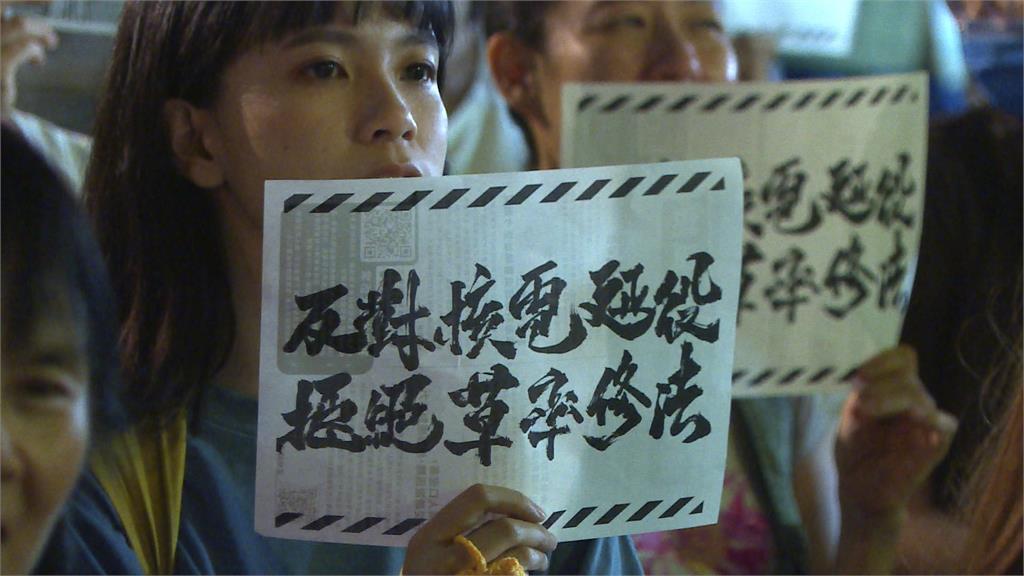 反對核電延役
拒絕草率修法
核電延役
草率修法